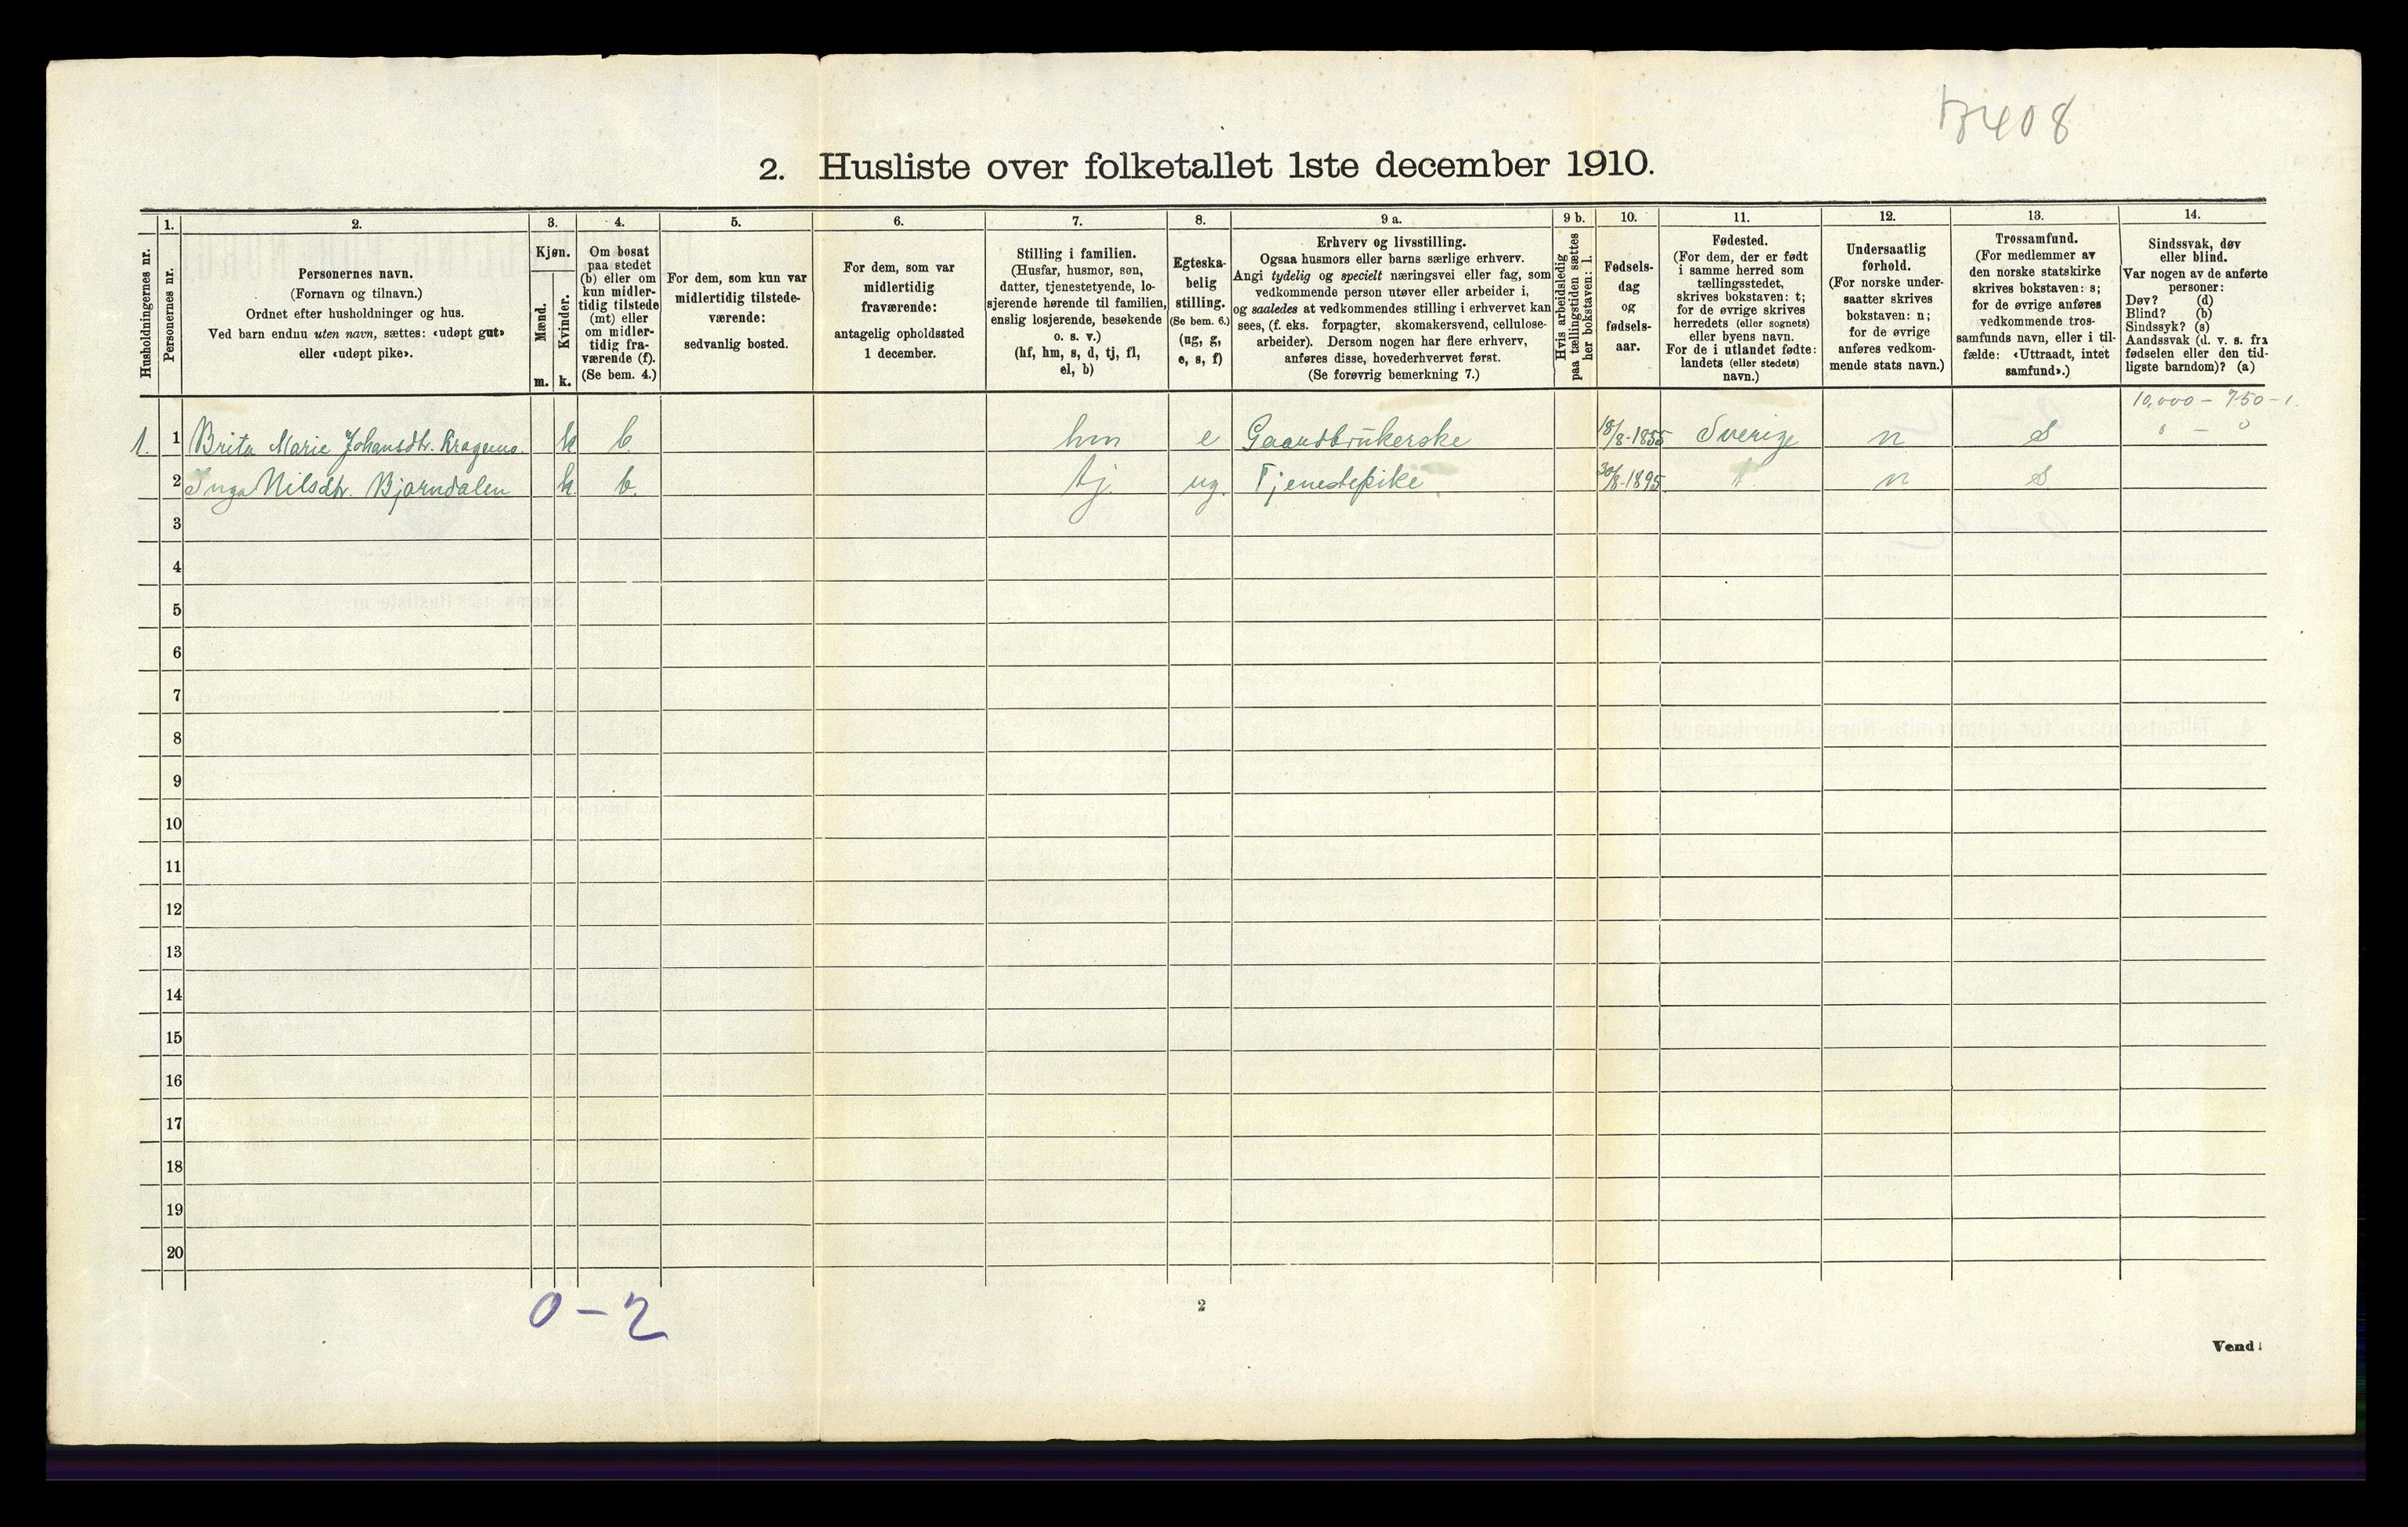 B408
2. Husliste over folketallet 1ste december 1910.
Husholdningernes nr.
1.
Personernes nr.
2.
Personernes navn.
(Fornavn og tilnavn.)
Ordnet efter husholdninger og hus.
Ved barn endnu uten navn, sættes: «udøpt gut»
eller «udøpt pike».
3.
Kjøn.
Mænd.
Kvinder.
m. k.
4.
Om bosat
paa stedet
(b) eller om
kun midler-
tidig tilstede
(mt) eller
om midler-
tidig fra-
værende (f).
(Se bem. 4.)
5.
For dem, som kun var
midlertidig tilstede-
værende:
sedvanlig bosted.
6.
For dem, som var
midlertidig
fraværende:
antagelig opholdssted
1 december.
7.
Stilling i familien.
(Husfar, husmor, søn,
datter, tjenestetyende, lo-
sjerende hørende til familien,
enslig losjerende, besøkende
o. s. v.)
(hf, hm, s, d, tj, fl,
el, b)
8.
Egteska-
belig
stilling.
(Se bem. 6.)
(ug, g,
e, s, f)
9 a.
Erhverv og livsstilling.
Ogsaa husmors eller barns særlige erhverv.
Angi tydelig og specielt næringsvei eller fag, som
vedkommende person utøver eller arbeider i,
og saaledes at vedkommendes stilling i erhvervet kan
sees, (f. eks. forpagter, skomakersvend, cellulose-
arbeider). Dersom nogen har flere erhverv,
anføres disse, hovederhvervet først.
(Se forøvrig bemerkning 7.)
9 b.
Hvis arbeidsledig
paa tællingstiden sættes
her bokstaven: l.
10.
Fødsels-
dag
og
fødsels-
aar.
11.
Fødested.
(For dem, der er født
i samme herred som
tællingsstedet,
skrives bokstaven: t;
for de øvrige skrives
herredets (eller sognets)
eller byens navn.
For de i utlandet fødte:
landets (eller stedets)
navn.)
12.
Undersaatlig
forhold.
(For norske under-
saatter skrives
bokstaven: n;
for de øvrige
anføres vedkom-
mende stats navn.)
13.
Trossamfund.
(For medlemmer av
den norske statskirke
skrives bokstaven: s;
for de øvrige anføres
vedkommende tros-
samfunds navn, eller i til-
fælde: «Uttraadt, intet
samfund».)
14.
Sindssvak, døv
eller blind.
Var nogen av de anførte
personer:
Døv? (d)
Blind? (b)
Sindssyk? (s)
Aandssvak (d. v. s. fra
fødselen eller den tid-
ligste barndom)? (a)
10,000 - 750 - 1.
0 - 0
1. 1 Brita Marie Johansdtr. Kragemo. k b. hm e Gaardbrukerske 18/8-1855 Sverige n S
2 Inga Nilsdtr. Bjørndalen k b. tj. ug. Tjenestepike 30/8-1895 t n S
3
4
5
6
7
8
9
10
11
12
13
14
15
16
17
18
19
20
0-2
2
Vend!